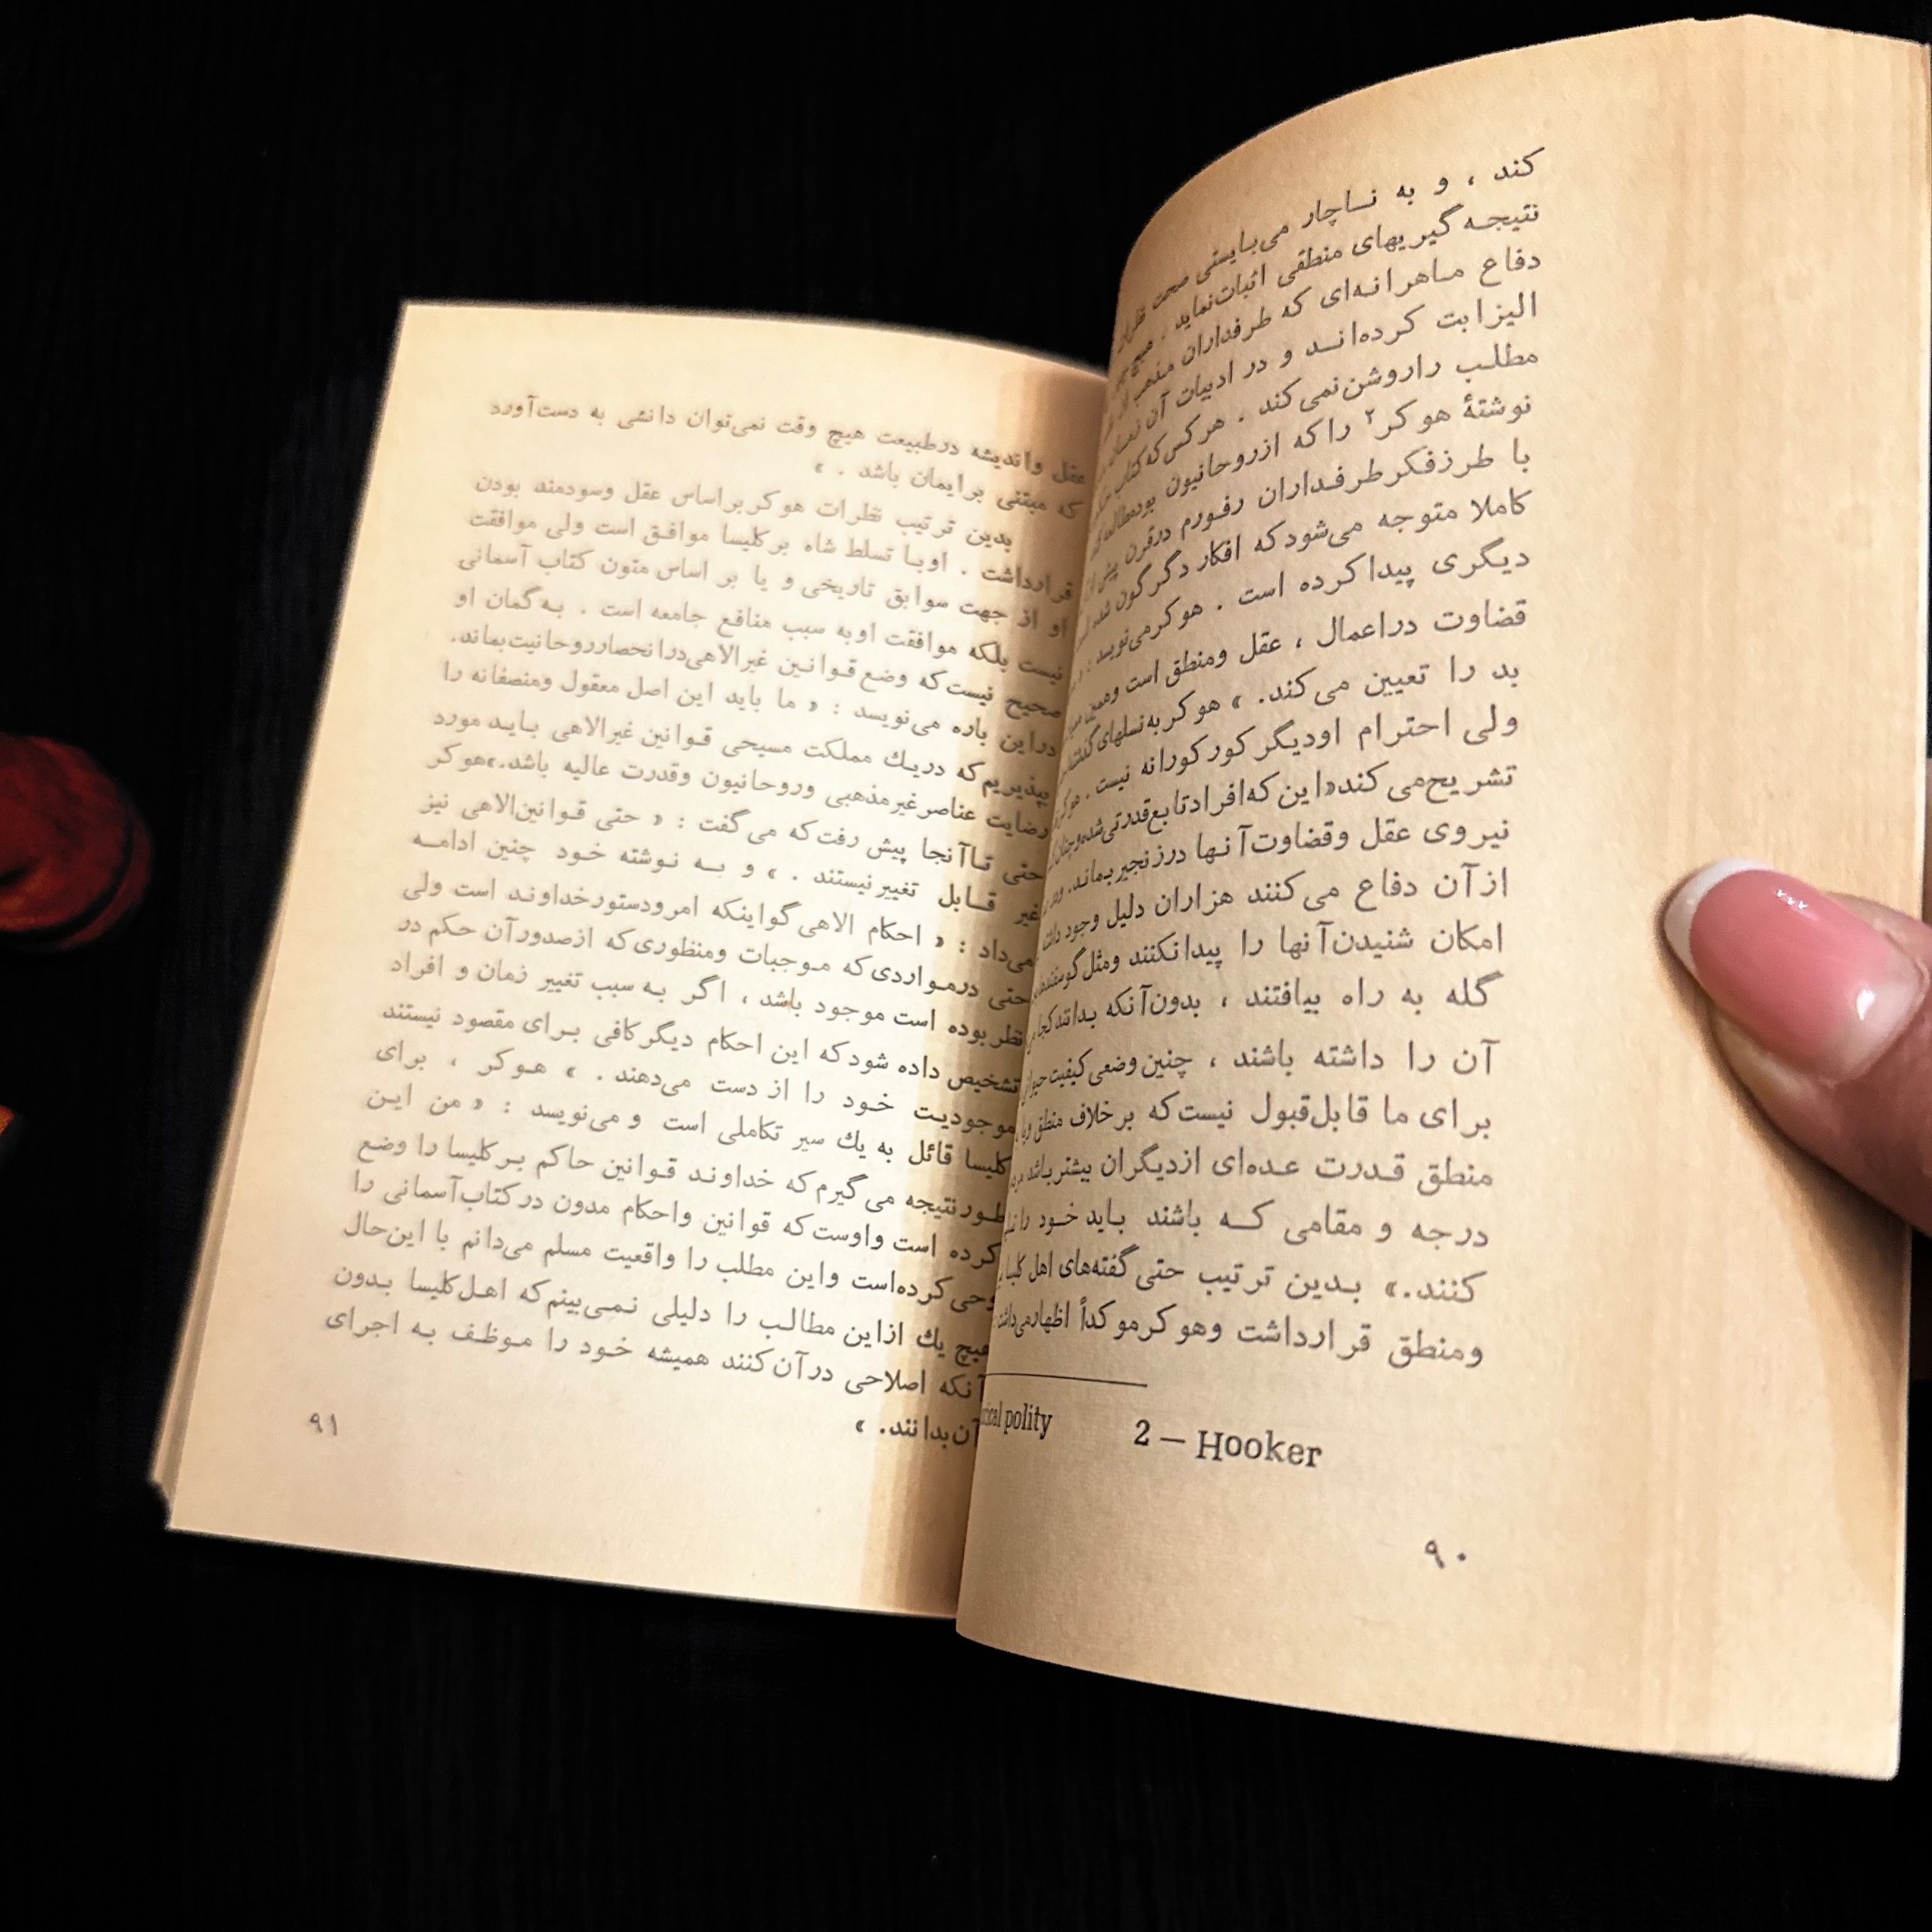 کند ، و به نـاچار می‌بـایستی صحت نظریات
نتیجـه گیریهای منطقی اثبات‌نماید . هیچ
دفاع مـاهرانـه‌ای که طرفداران مـذهب از
الیزابت کرده‌انـد و در ادبیات آن زمـان
مطلـب راروشن‌نمی‌کند . هرکس‌که‌کتاب
نوشتهٔ هوکر۲ راکه ازروحانیون بودمطالعه‌کند
با طرزفکرطرفـداران رفـورم درقرن پیش از
کاملا متوجه می‌شودکه افکار دگرگون شده
دیـگری پیداکرده است . هوکرمی‌نویسد :
قضاوت دراعمال ، عقل ومنطق است وهمین
بد را تعیین می‌کند. » هوکربه‌نسلهای‌گذشته
ولی احترام اودیگرکورکورانه نیست . هوکر
تشریح‌می‌کند«این‌که‌افرادتابع‌قدرتی‌شده‌وچنان
نیروی عقل وقضاوت‌آنـها درزنجیربمانـد.
ازآن دفاع می‌کنند هزاران دلیل وجود داشته
امکان شنیدن‌آنها را پیدانکنند ومثل‌گوسفند
گله به راه بیافتند ، بدون‌آنکه بـدانندکجا
آن را داشته باشند ، چنین‌وضعی‌کیفیت
برای ما قابل‌قبول نیست‌که برخلاف منطق ویا
منطق قـدرت عـده‌ای ازدیگران بیشتربـاشد
درجه و مقامی کـه باشند بـاید خـود را
کنند.» بـدین ترتیب حتی‌گفته‌های اهل کلیسا
ومنطق قرارداشت وهوکرموکداً اظهارمی‌داشت
polity
2 — Hooker
۹۰
عقل واندیشه درطبیعت هیچ وقت نمی‌توان دانشی به دست‌آورد
که مبتنی برایمان باشد . »
بدین ترتیب نظرات هوکربراساس عقل وسودمند بودن
قرارداشت . اوبـا تسلط شاه برکلیسا موافـق است ولی موافقت
او از جهت سوابق تاریخی و یا بر اساس متون کتاب آسمانی
نیست بلکه موافقت اوبه سبب منافع جامعه است . بـه‌گمان او
صحیح نیست‌که وضع قـوانـین غیرالاهی‌درانحصارروحانیت‌بماند.
دراین باره می‌نویسد : « ما باید این اصل معقول ومنصفانه را
بپذیریم‌که دریـك مملکت مسیحی قـوانین غیرالاهی بـایـد مورد
رضایت عناصرغیرمذهبی وروحانیون وقدرت عالیه باشد.»هوکر
حتی تـاآنجا پیش رفت‌که می‌گفت : « حتی قـوانین‌الاهی نیز
غیر قـابل تغییرنیستند . » و بـه نـوشته خـود چنین ادامـه
می‌داد : « احکام الاهی‌گواینکه امرودستورخداونـد است ولی
حتی درمـواردی‌که مـوجبات ومنظوری‌که ازصدورآن حکم در
نظربوده است موجود باشد ، اگر بـه سبب تغییر زمان و افراد
تشخیص داده شودکه این احکام دیگرکافی بـرای مقصود نیستند
موجودیـت خـود را از دست می‌دهند . » هـوکر ، برای
کلیسا قائل به یك سیر تکاملی است و می‌نویسد : « من ایـن
طـورنتیجه می‌گیرم‌که خداونـد قـوانین حاکم بـرکلیسا را وضع
کرده است واوست‌که قوانین واحکام مدون درکتاب‌آسمانی را
وحی‌کرده‌است واین مطلب را واقعیت مسلم می‌دانم با این‌حال
هیچ یك ازاین مطالـب را دلیلی نـمـی‌بینم‌که اهـل‌کلیسا بـدون
آنکه اصلاحی درآن‌کنند همیشه خـود را مـوظـف بـه اجرای
آن‌بدانند. »
۹۱